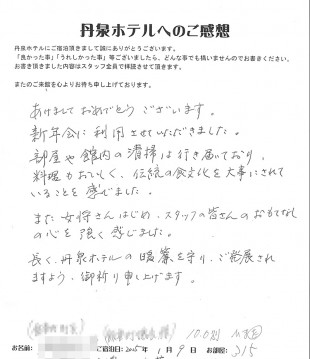 丹泉ホテルへのご感想
丹泉ホテルにご宿泊頂きまして誠にありがとうございます。
「良かった事」「うれしかった事」等ございましたら、どんな事でも構いませんのでお書きください。
お書き頂きました内容はスタッフ全員で拝読させて頂きます。
またのご来館を心よりお待ち申し上げております。
あけましておめでとうございます。
新年会に利用させていただきました。
部屋や館内の清掃は行き届いており、
料理もおいしく、伝統の食文化を大事にされて
いることを感じました。
また女将さんはじめ、スタッフの皆さんのおもてなし
の心を強く感じました。
長く、丹泉ホテルの暖簾を守り、ご発展され
ますよう、御祈り申し上げます。
お名前: ご宿泊日:2015年1月9日 お部屋:315